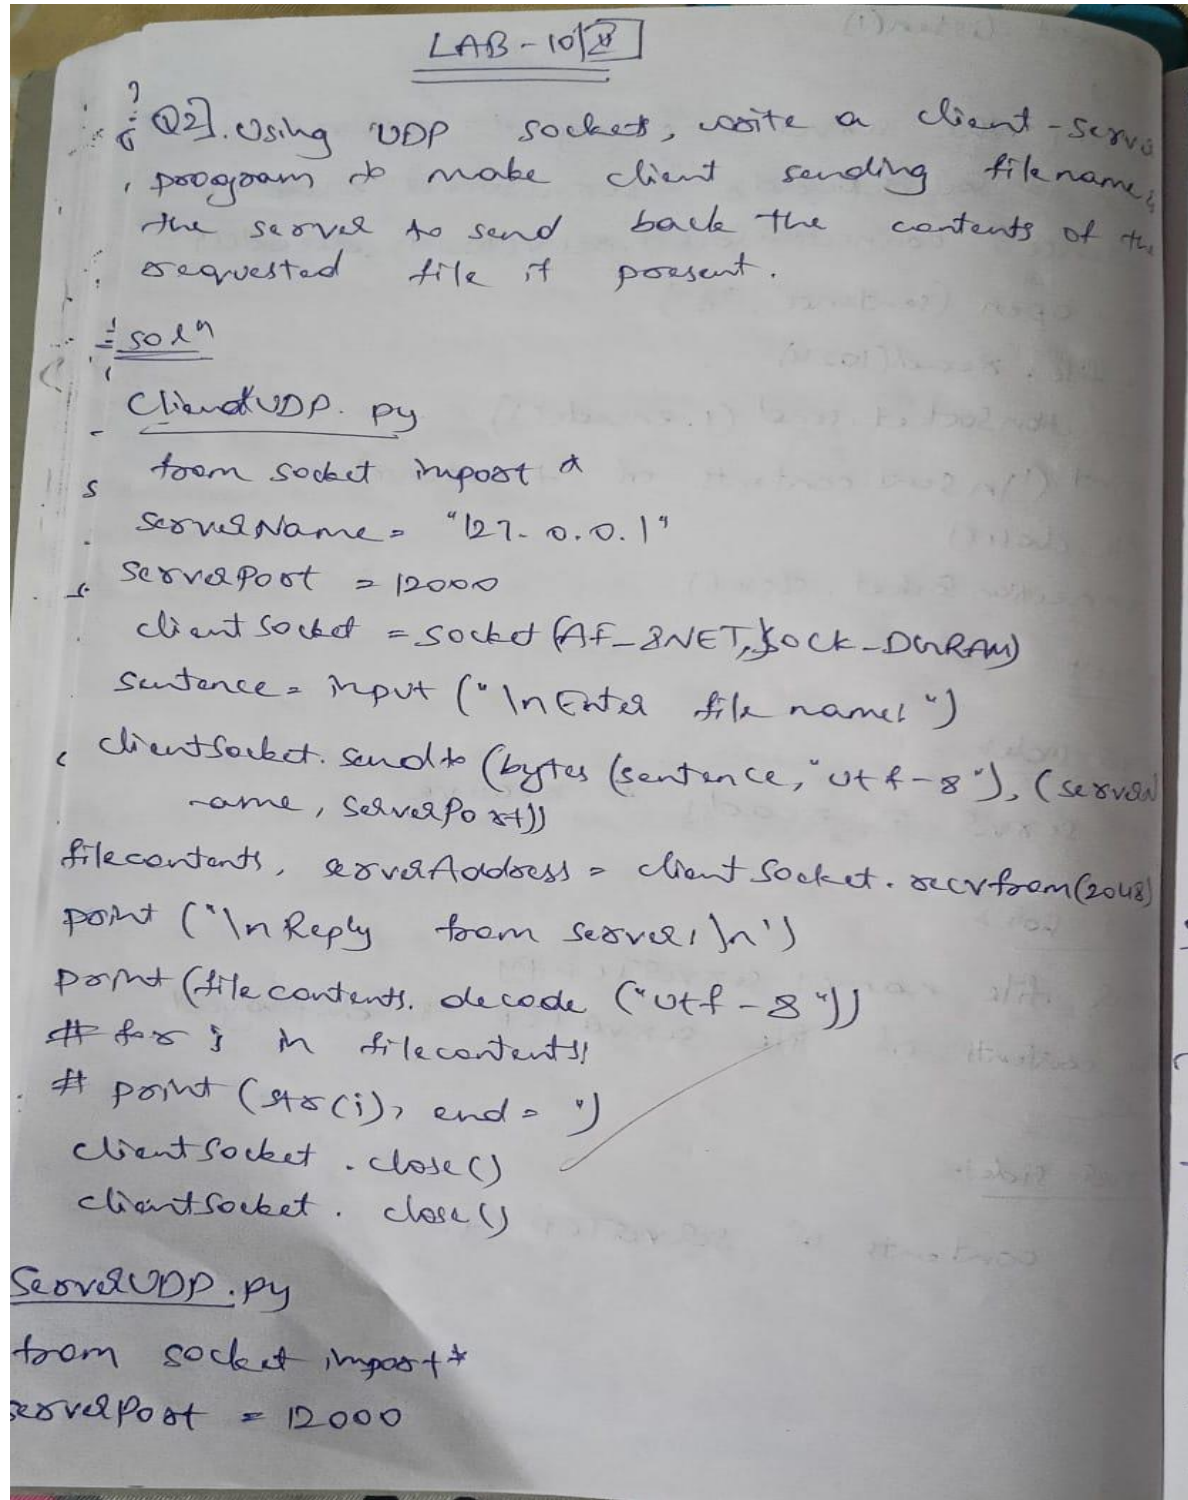 LAB-10
Q2]. Using UDP sockets, write a client-serve
program to make client sending filename,
the server to send back the contents of the
requested file if present.
soln
ClientUDP.py
from socket import *
serverName = "127.0.0.1"
serverPort = 12000
clientSocket = socket(AF_INET, SOCK_DGRAM)
sentence = input ("\nEnter file name: ")
clientSocket.sendto (bytes (sentence, "utf-8"), (server
name, serverPort))
filecontents, serverAddress = clientSocket.recvfrom(2048)
print ("\nReply from server: \n')
print (filecontents.decode ("utf-8"))
# for i in filecontents:
# print (str(i), end = ')
clientSocket.close()
clientSocket.close()
ServerUDP.py
from socket import *
serverPort = 12000